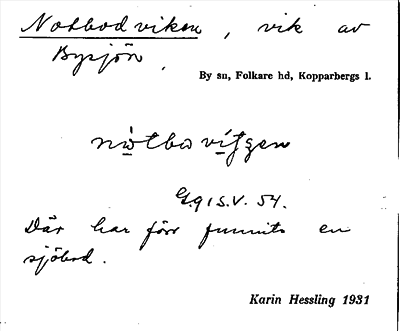 Notbodviken, vik av
Bysjön.
By sn, Folkare hd, Kopparbergs l.
Där har förr funnits en
sjöbod.
Karin Hessling 1931